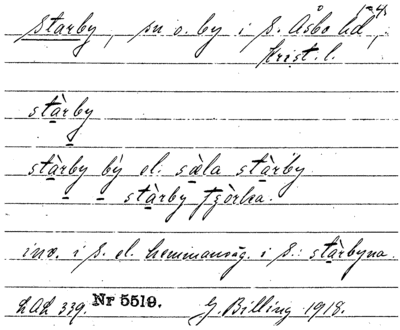 1-4.
Starby, sn o. by i S. Åsbo hd,
Krist. l.
stàrby
stàrby bý el. sæla stàrby
stàrby tjòrka.
inv. i S. el. hemmansäg. i S.: stàrbyna.
LAL 339. Nr 5519. G. Billing 1918.